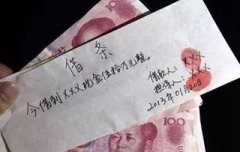 借条
今借到XXX现金伍拾万元整。
借款人：XXX
担保人：XXX
2013年01月
100
100